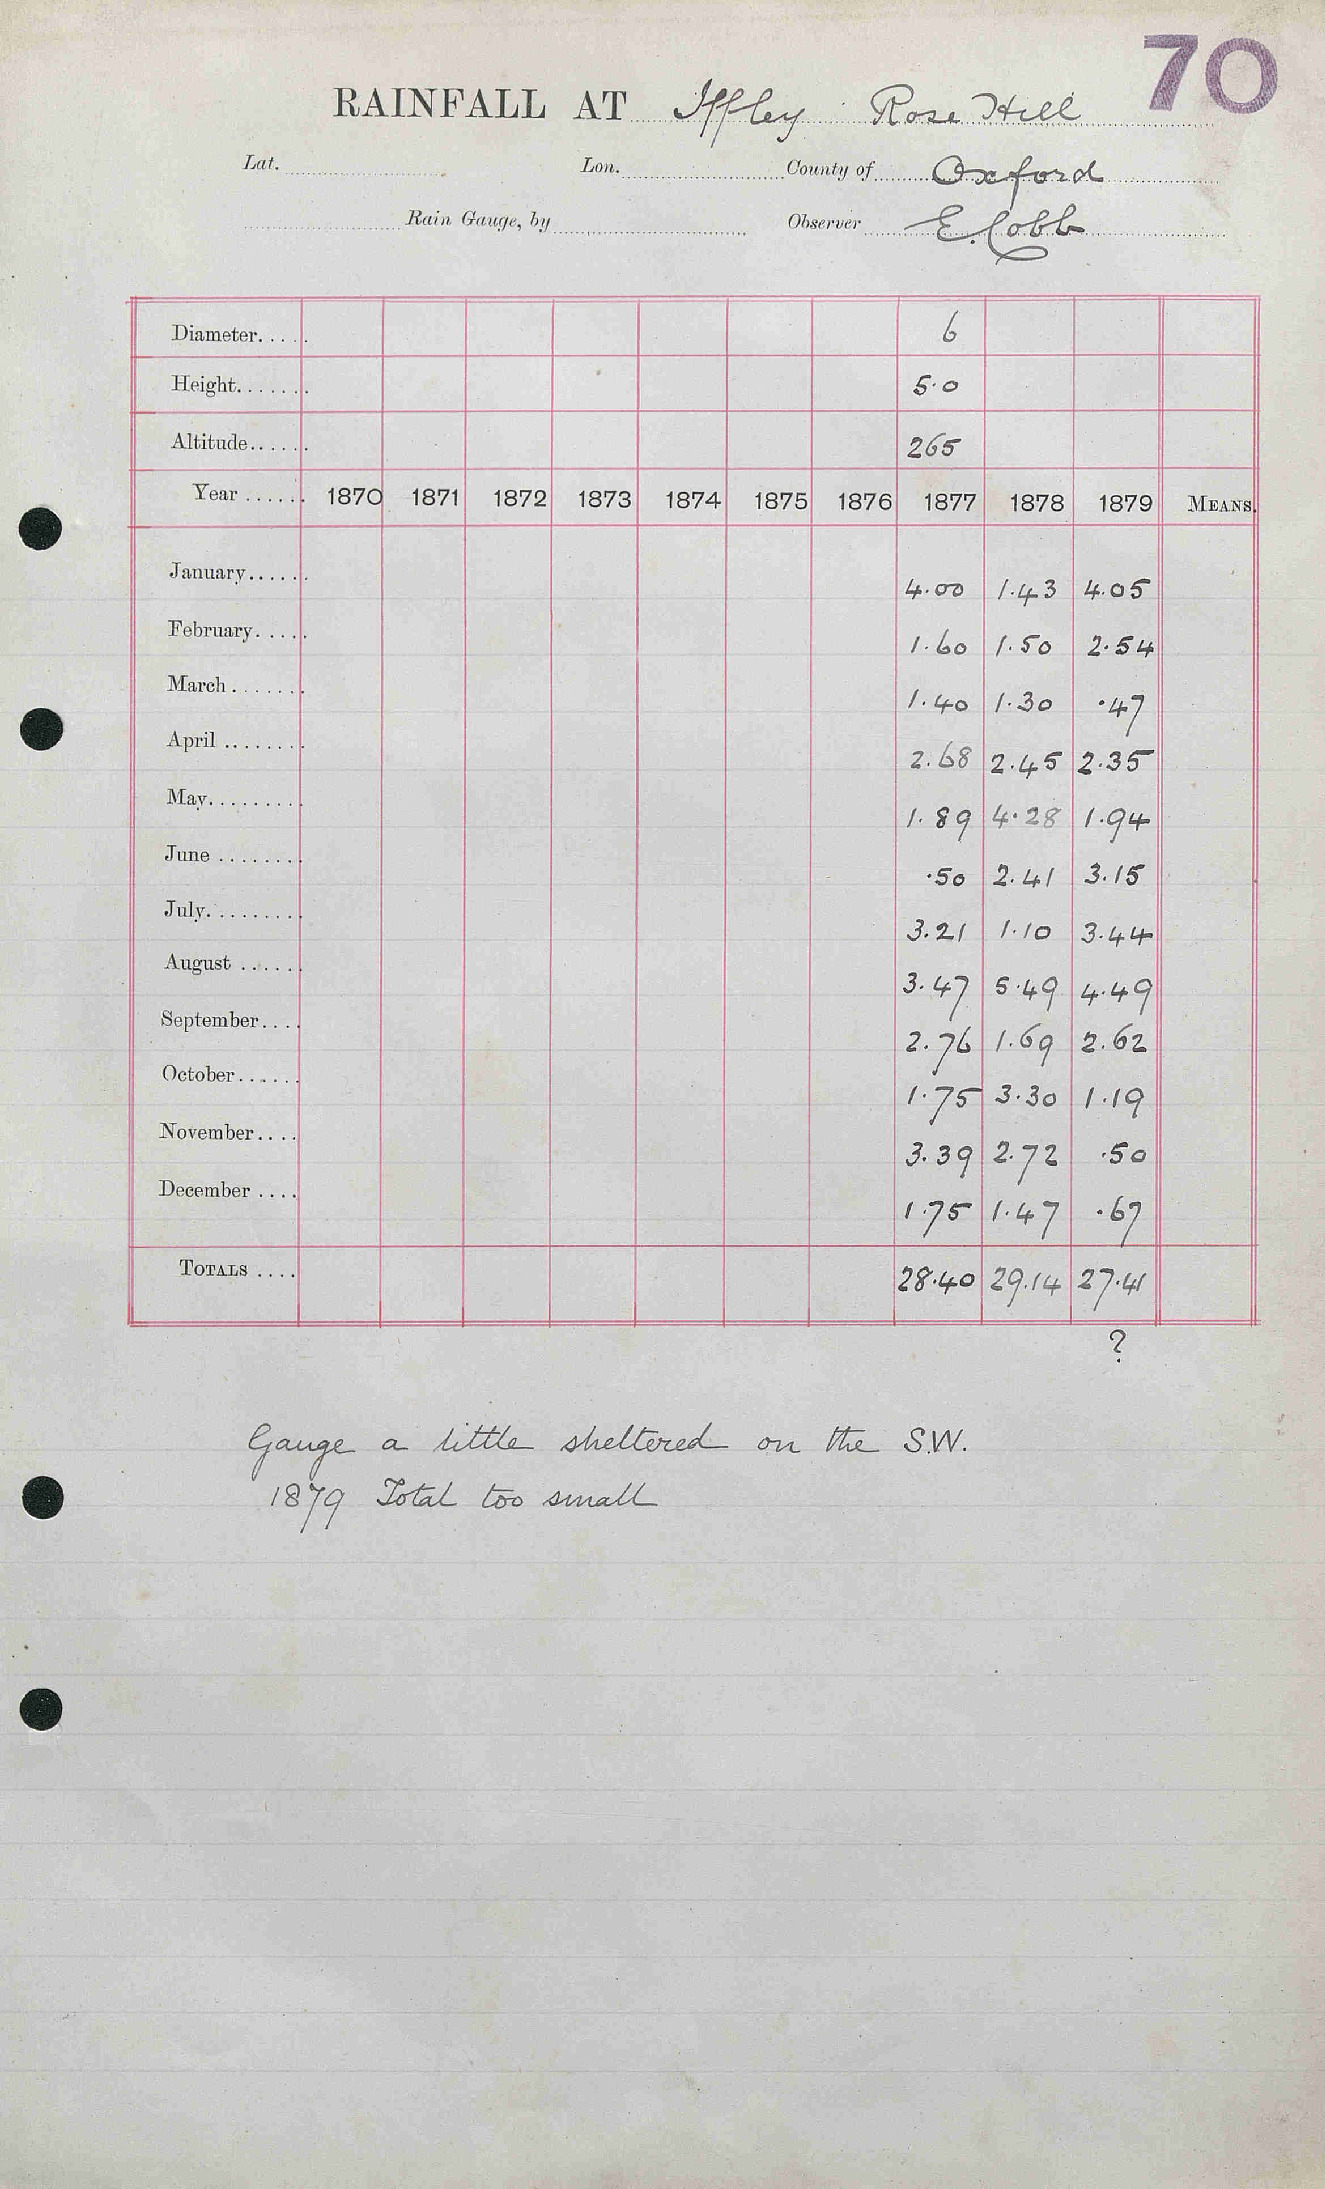 70
RAINFALL AT Iffley Rose Hill
Lat. Lon. County of Oxford
Rain Gauge, by Observer E. Cobb
Diameter..... 6
Height....... 5.0
Altitude...... 265
Year ...... 1870 1871 1872 1873 1874 1875 1876 1877 1878 1879 MEANS.
January...... 4.00 1.43 4.05
February..... 1.60 1.50 2.54
March ....... 1.40 1.30 .47
April ........ 2.68 2.45 2.35
May......... 1.89 4.28 1.94
June ........ .50 2.41 3.15
July......... 3.21 1.10 3.44
August ...... 3.47 5.49 4.49
September.... 2.76 1.69 2.62
October...... 1.75 3.30 1.19
November.... 3.39 2.72 .50
December .... 1.75 1.47 .67
TOTALS .... 28.40 29.14 27.41
?
Gauge a little sheltered on the S.W.
1879 Total too small